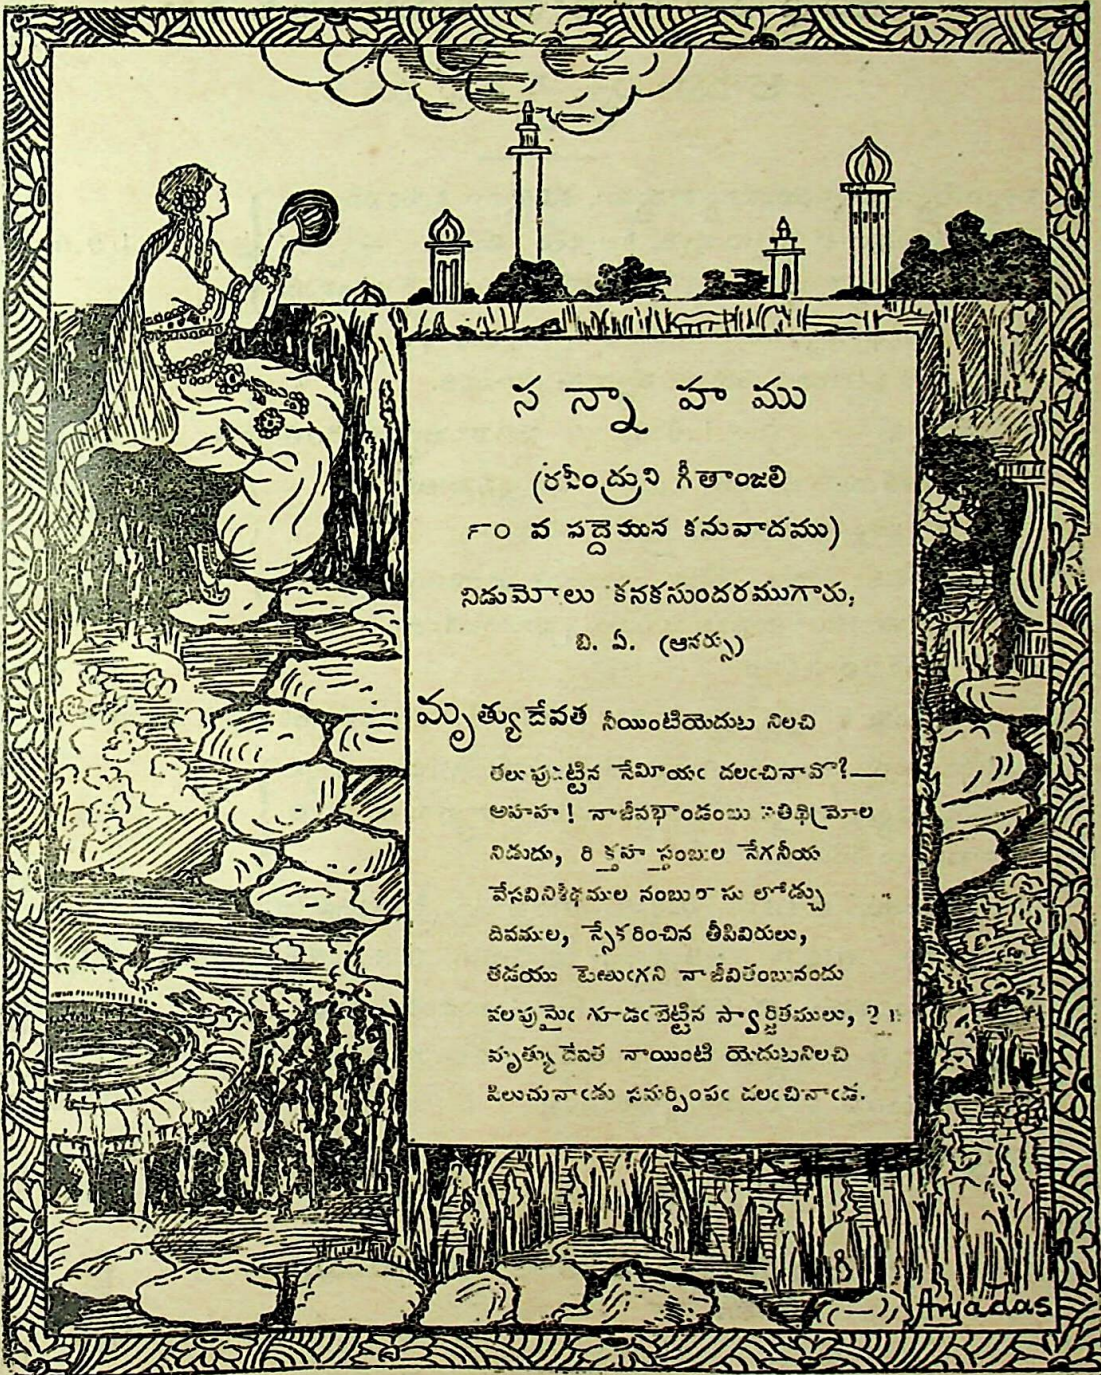 సన్నాహము
(రవీంద్రుని గీతాంజలి
౯౦ వ పద్దెమున కనువాదము)
నిడుమోలు కనకసుందరముగారు,
బి. ఏ. (ఆనర్సు)
మృత్యుదేవత నీయింటియెదుట నిలచి
తలుపుతట్టిన నేమీయఁ దలఁచినావొ?—
అహహ! నాజీవభాండంబు నతిథిమ్రోల
నిడుదు, రిక్తహస్తంబుల నేగనీయ
వేసవినిశీథముల నంబురాసు లోడ్చు
దివముల, స్వేకరించిన తీపివిరులు,
తడయు టెఱుఁగని నాజీవితంబునందు
వలపుమైఁ గూడఁబెట్టిన స్వార్జితములు, ?
మృత్యుదేవత నాయింటి యెదుటనిలచి
పిలుచునాఁడు సమర్పింపఁ దలఁచినాఁడ.
Aryadas